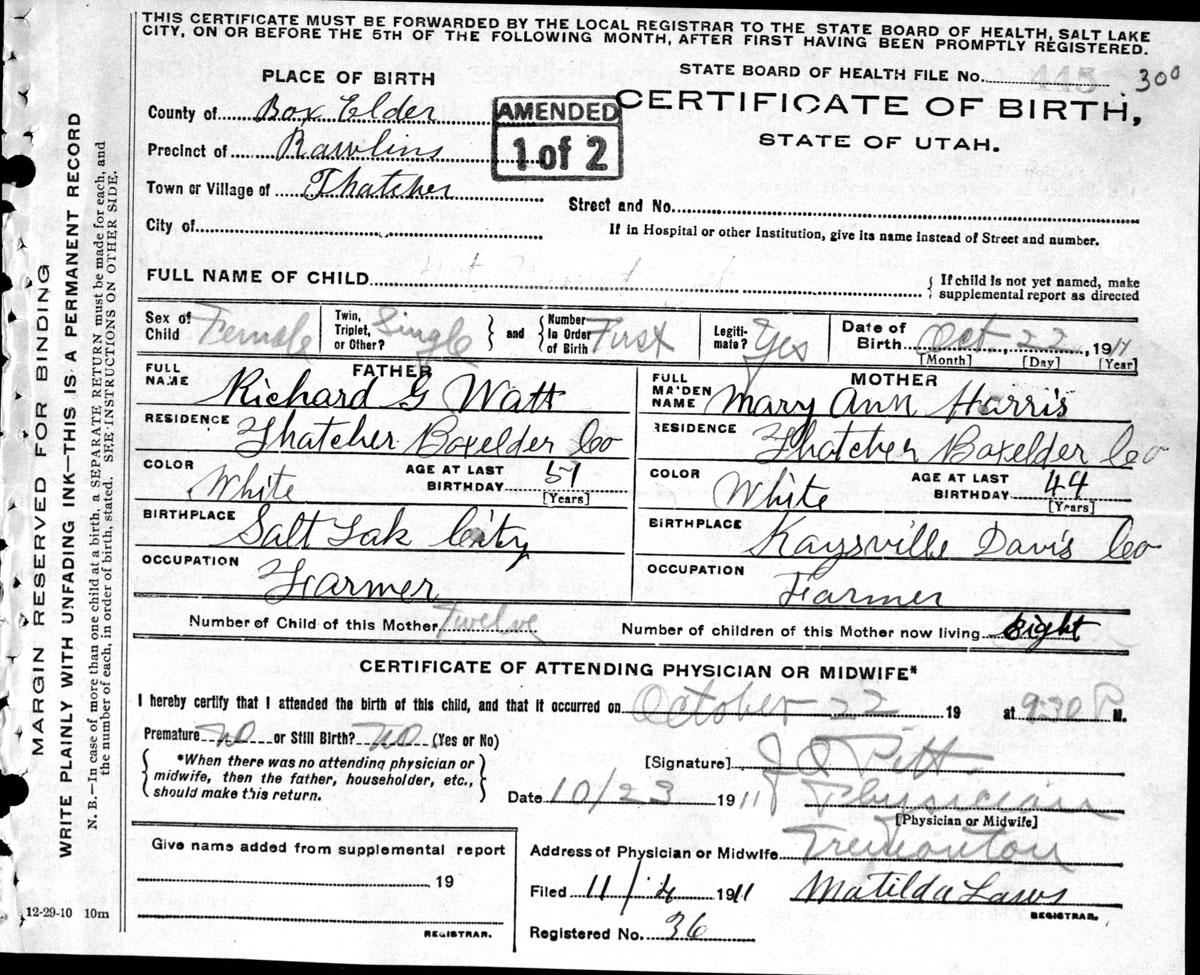 THIS CERTIFICATE MUST BE FORWARDED BY THE LOCAL REGISTRAR TO THE STATE BOARD OF HEALTH, SALT LAKE
CITY, ON OR BEFORE THE 5TH OF THE FOLLOWING MONTH, AFTER FIRST HAVING BEEN PROMPTLY REGISTERED.
PLACE OF BIRTH
STATE BOARD OF HEALTH FILE No. 300
County of Box Elder
AMENDED
1 of 2
CERTIFICATE OF BIRTH,
STATE OF UTAH.
Precinct of Rawlins
Town or Village of Thatcher
Street and No.
City of
If in Hospital or other Institution, give its name instead of Street and number.
FULL NAME OF CHILD
If child is not yet named, make
supplemental report as directed
Sex of Child Female
Twin, Triplet, or Other? Single
and
Number In Order of Birth First
Legiti- mate? Yes
Date of Birth Oct. 22, 1911
[Month] [Day] [Year]
FATHER
FULL NAME Richard G Watt
RESIDENCE Thatcher Boxelder Co
COLOR White
AGE AT LAST BIRTHDAY 51
[Years]
BIRTHPLACE Salt Lak City
OCCUPATION Farmer
MOTHER
FULL MAIDEN NAME Mary Ann Harris
RESIDENCE Thatcher Boxelder Co
COLOR White
AGE AT LAST BIRTHDAY 44
[Years]
BIRTHPLACE Kaysville Davis Co
OCCUPATION Farmer
Number of Child of this Mother Twelve
Number of children of this Mother now living eight
CERTIFICATE OF ATTENDING PHYSICIAN OR MIDWIFE*
I hereby certify that I attended the birth of this child, and that it occurred on October 22 19 at 9:30 P M.
Premature No or Still Birth? No (Yes or No)
*When there was no attending physician or
midwife, then the father, householder, etc.,
should make this return.
[Signature] Pitt
Date 10/23 1911 Physician
[Physician or Midwife]
Give name added from supplemental report
19
REGISTRAR.
Address of Physician or Midwife Tremonton
Filed 11/4 1911 Matilda Laws
REGISTRAR.
Registered No. 36
12-29-10 10m
MARGIN RESERVED FOR BINDING
WRITE PLAINLY WITH UNFADING INK—THIS IS A PERMANENT RECORD
N. B.—In case of more than one child at a birth, a SEPARATE RETURN must be made for each, and
the number of each, in order of birth, stated. SEE INSTRUCTIONS ON OTHER SIDE.